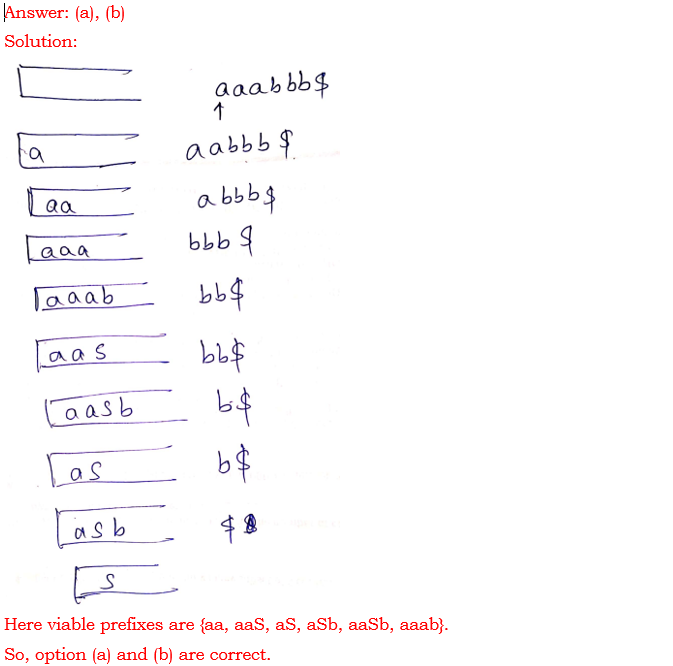 Answer: (a), (b)
Solution:
aaabbb$
↑
a aabbb$
aa abbb$
aaa bbb$
aaab bb$
aas bb$
aasb b$
as b$
asb $
s
Here viable prefixes are {aa, aaS, aS, aSb, aaSb, aaab}.
So, option (a) and (b) are correct.